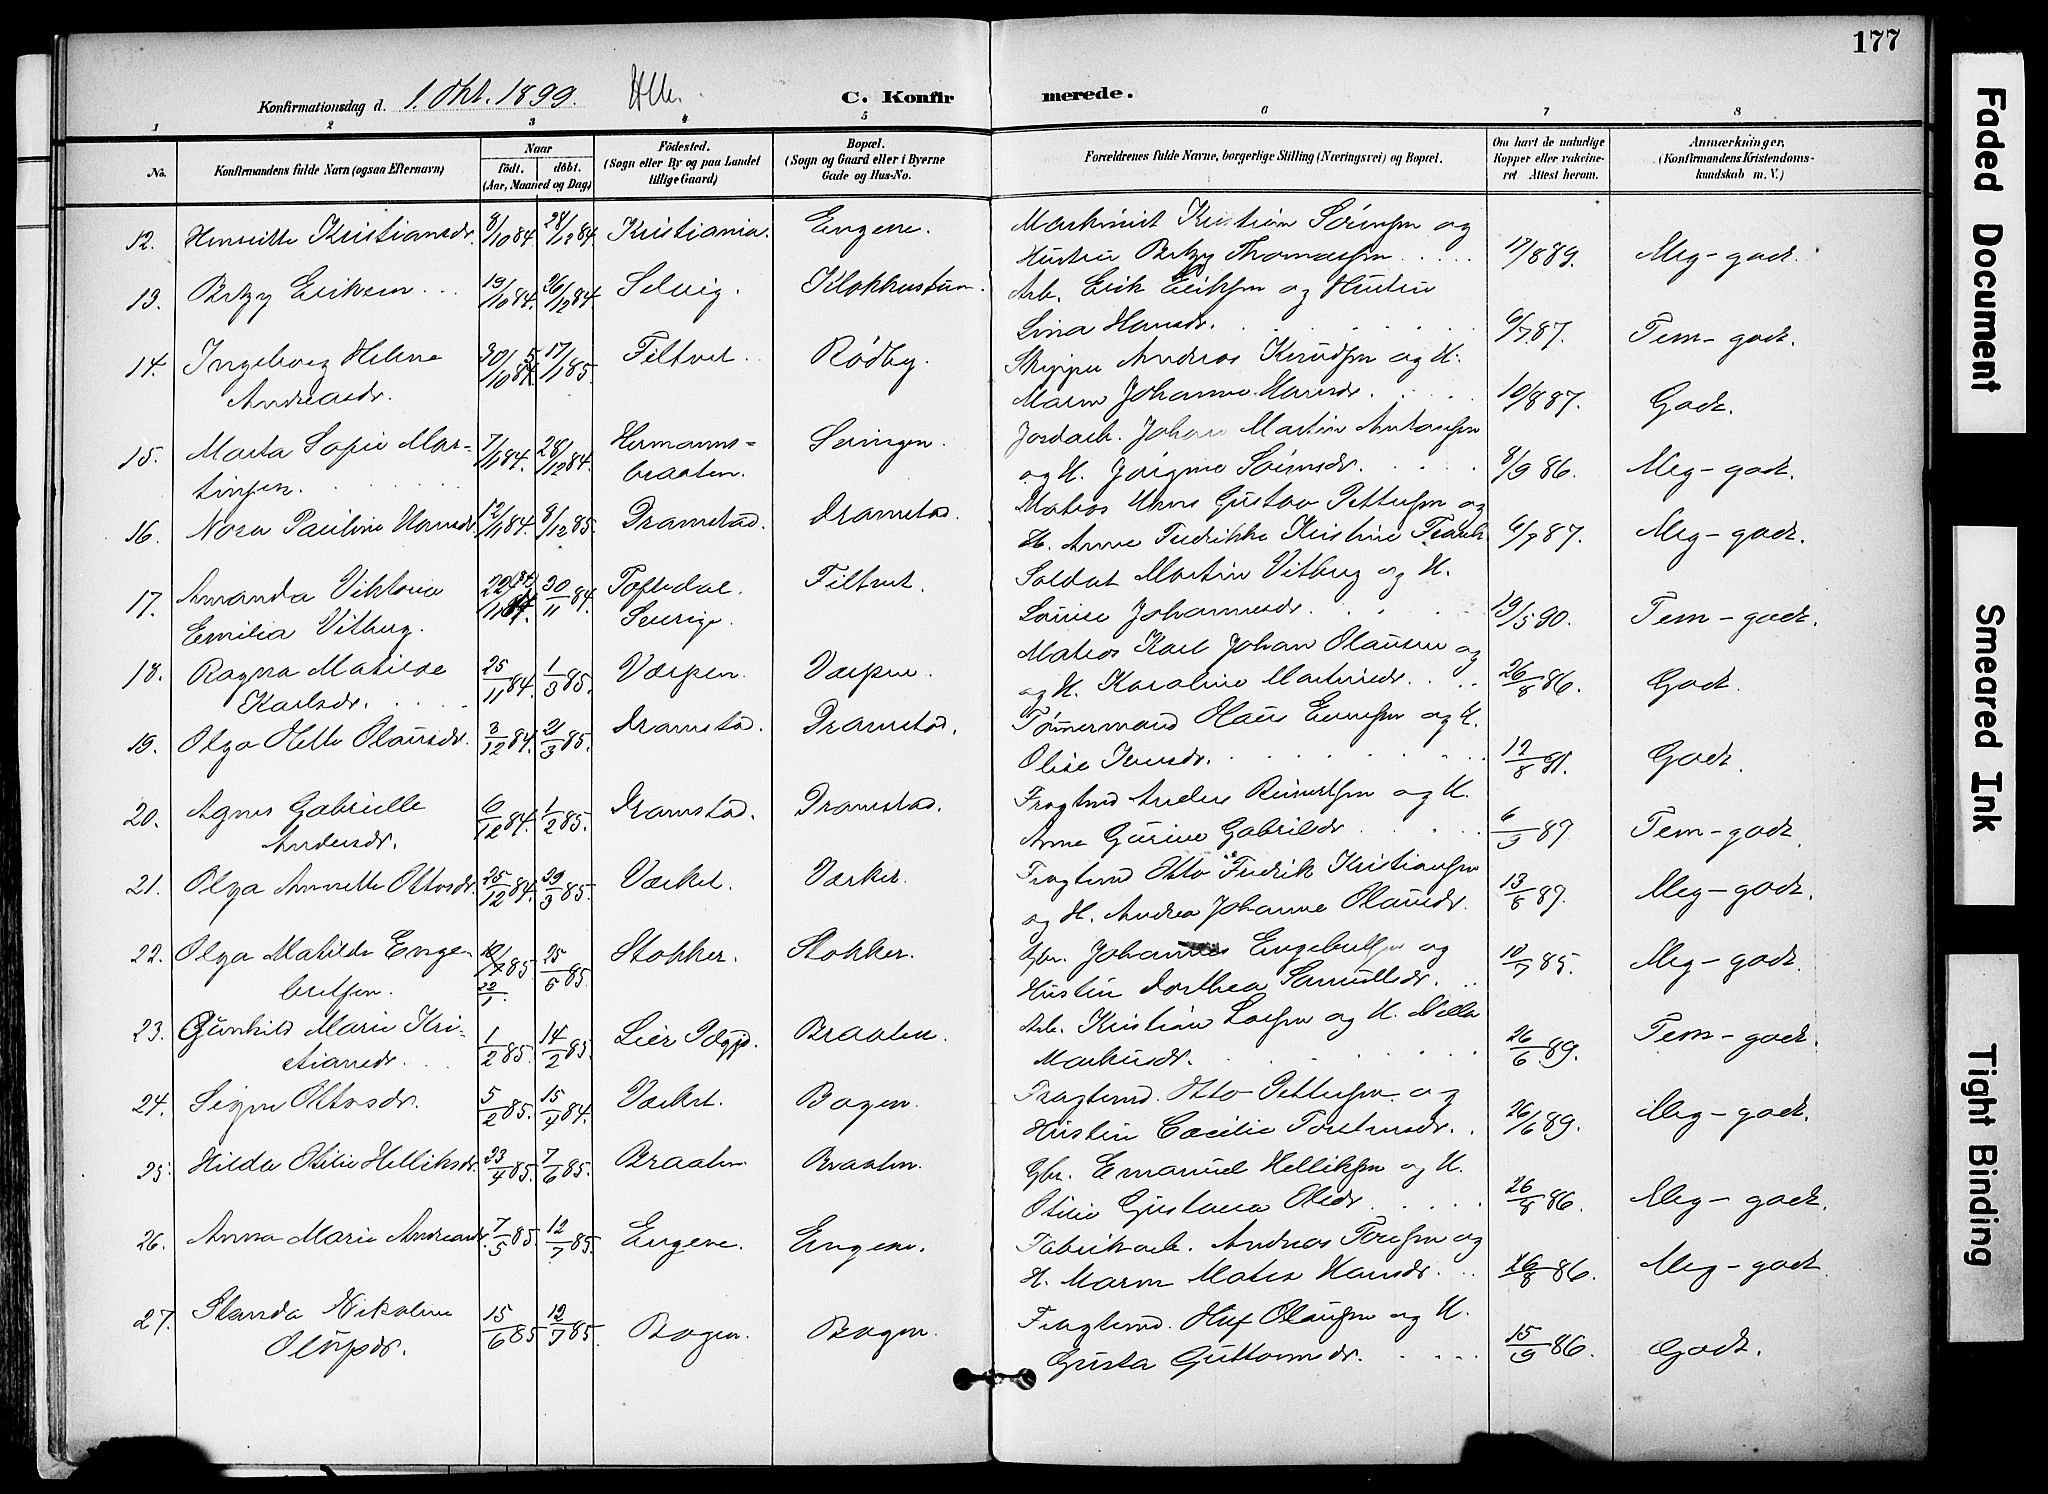 177
Konfirmationsdag d. 1. Okt. 1899.
C. Konfirmerede.
1 2 3 4 5 6 7 8
No.
Konfirmandens fulde Navn (ogsaa Efternavn)
Naar
født. døbt.
(Aar, Maaned og Dag)
Födested.
(Sogn eller By og paa Landet
tillige Gaard)
Bopæl.
(Sogn og Gaard eller i Byerne
Gade og Hus-No.
Forældrenes fulde Navne, borgerlige Stilling (Næringsvei) og Bopæl.
Om havt de naturlige
Kopper eller vakcine-
ret Attest herom.
Anmærkninger,
(Konfirmandens Kristendoms-
kundskab m. V.)
12. Henriette Kristiansdr. 8/10 84. 28/12 84. Kristiania. Engene. Maskinist Kristian Sörensen og
Hustru Betzy Thomassen 17/8 89. Meg-godt.
13. Betzy Eriksen 19/10 84. 26/12 84. Selvig. Klokkustuen. Arb. Erik Eriksen og Hustru
Lina Hansdr. 6/7 87. Tem-godt.
14. Ingeborg Helene 30/10 84. 17/1 85. Filtvet. Rödby. Skipper Andreas Knudsen og H.
Andreasdr. Maren Johanne Hansdr. 10/8 87. Godt.
15. Marta Sofie Mar- 7/11 84. 28/12 84. Hermanns- Sevingen. Jordarb. Johan Martin Antonsen
tinsen. braaten. og H. Jörgine Sörensdr. 8/9 86. Meg-godt.
16. Nora Pauline Hansdr. 12/11 84. 8/12 85. Dramstad. Dramstad. Matros Hans Gustav Pettersen og
H. Anne Fredrikke Kristine 6/7 87. Meg-godt.
17. Amanda Viktoria 22/11 84. 30/11 84. Toftedal Filtvet. Soldat Martin Vitberg og H.
Emilia Vitberg. Sverige. Louise Johannesdr. 19/5 90. Tem-godt.
18. Ragna Matilde 25/11 84. 1/3 85. Værpen. Værpen. Matros Karl Johan Olausen og
Karlsdr. og H. Karoline Martinsdr. 26/8 86. Godt.
19. Olga Hette Olausdr. 3/12 84. 21/3 85. Dramstad. Dramstad. Tømmermand Olaus Evensen og H.
Olise Jensdr. 12/8 91. Godt.
20. Agnes Gabrielle 6/12 84. 1/2 85. Dramstad. Dramstad. Fragtmd Anders Reinertsen og H.
Andersdr. Anne Gurine Gabrielsdr. 6/9 87. Tem-godt.
21. Olga Annette Ottosdr. 25/12 84. 29/3 85. Værket. Værket. Fragtmd Otto Fredrik Kristiansen
og H. Andrea Johanne Olausdr. 13/8 87. Meg-godt.
22. Olga Matilde Enge- 85. 22/1. 25/5 85. Stokker. Stokker. Gbr. Johannes Engebretsen og
bretsen. Hustru Dorthea Samuelsdr. 10/7 85. Meg-godt.
23. Gunhild Marie Kri- 1/2 85. 14/2 85. Lier Braaten. Arb. Kristian Larsen og H. Mella
stiansdr. Markusdr. 26/6 89. Tem-godt.
24. Signe Ottosdr. 5/2 85. 15/4 84. Værket. Bogen. Fragtmd. Otto Pettersen og
Hustru Cæcilie Torstensdr. 26/6 89. Meg-godt.
25. Hilda Otilie Helliksdr. 23/4 85. 7/6 85. Braaten. Braaten. Gbr. Emanuel Helliksen og H.
Otilie Gustava Olsdr. 26/8 86. Meg-godt.
26. Anna Marie Andreasdr. 7/5 85. 12/7 85. Engene. Engene. Fabrikarb. Andreas Toresen og
H. Maren Matea Hansdr. 26/8 86. Meg-godt.
27. Standa Nikoline 15/6 85. 12/7 85. Bogen. Bogen. Fragtmd. Olausen og H.
Olufsdr. Gusta Guttormsdr. 15/9 86. Godt.
Faded Document
Smeared Ink
Tight Binding